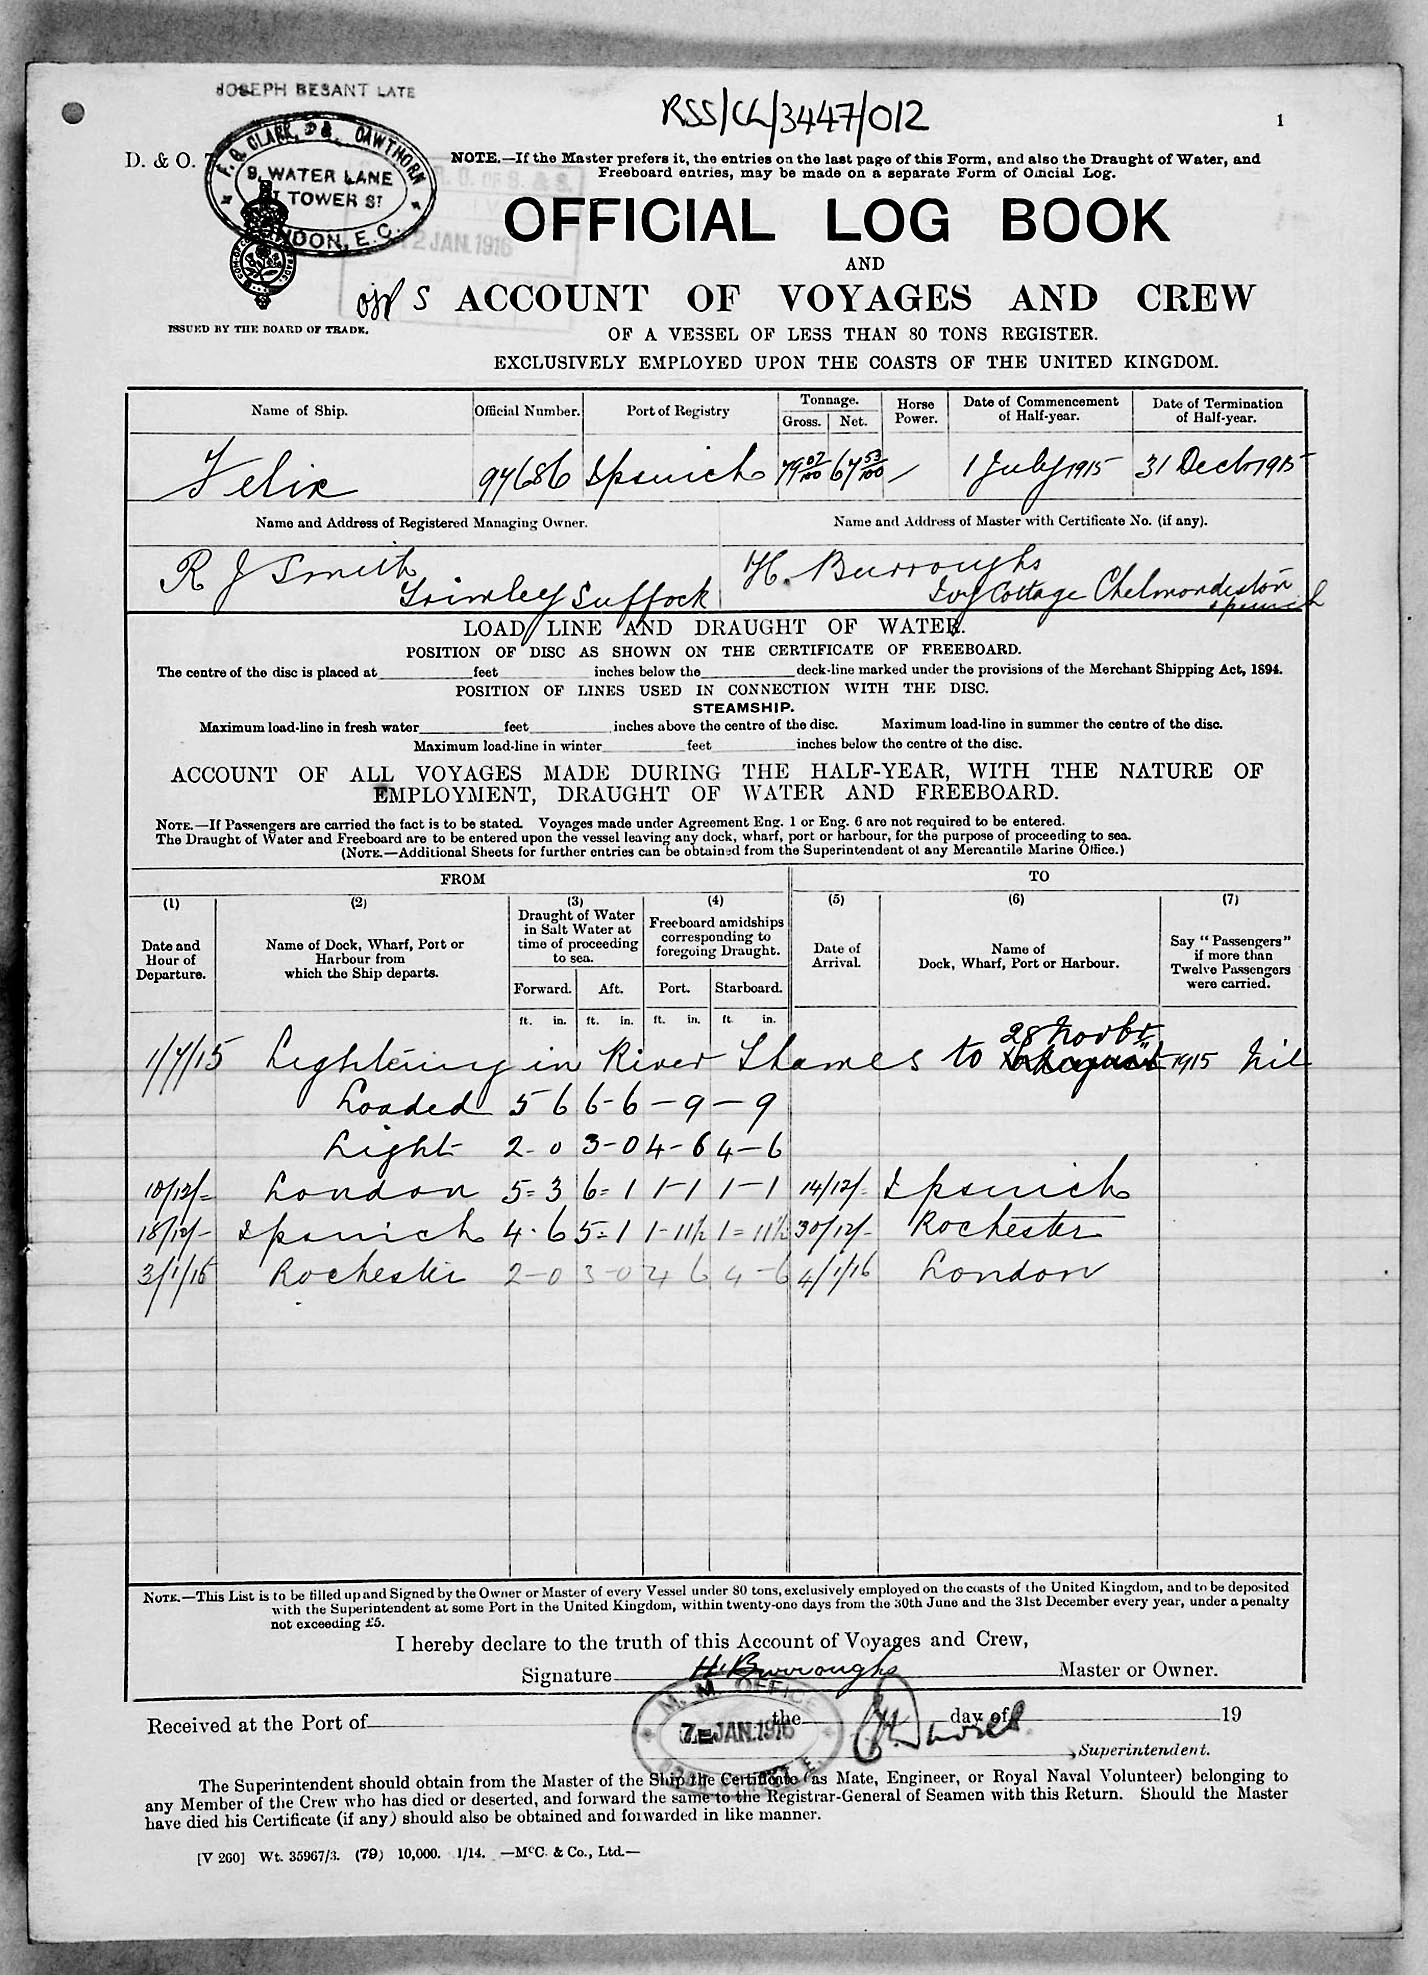 JOSEPH BESANT LATE
RSS/CL/3447/012
1
D. & O. 7
F. G. CLARK, D. & CAWTHORN
9, WATER LANE
GT TOWER ST
LONDON, E.C.
NOTE.—If the Master prefers it, the entries on the last page of this Form, and also the Draught of Water, and
Freeboard entries, may be made on a separate Form of Official Log.
12 JAN. 1916
OFFICIAL LOG BOOK
AND
S ACCOUNT OF VOYAGES AND CREW
ISSUED BY THE BOARD OF TRADE.
OF A VESSEL OF LESS THAN 80 TONS REGISTER.
EXCLUSIVELY EMPLOYED UPON THE COASTS OF THE UNITED KINGDOM.
Name of Ship. Official Number. Port of Registry Tonnage. Gross. Net. Horse Power. Date of Commencement of Half-year. Date of Termination of Half-year.
Felix 97686 Ipswich 79 02/100 67 53/100 / 1 July 1915 31 Decbr 1915
Name and Address of Registered Managing Owner. Name and Address of Master with Certificate No. (if any).
R J Smith H. Burroughs
Trimley Suffock Ivy Cottage Chelmondiston
Ipswich
LOAD LINE AND DRAUGHT OF WATER.
POSITION OF DISC AS SHOWN ON THE CERTIFICATE OF FREEBOARD.
The centre of the disc is placed at feet inches below the deck-line marked under the provisions of the Merchant Shipping Act, 1894.
POSITION OF LINES USED IN CONNECTION WITH THE DISC.
STEAMSHIP.
Maximum load-line in fresh water feet inches above the centre of the disc. Maximum load-line in summer the centre of the disc.
Maximum load-line in winter feet inches below the centre of the disc.
ACCOUNT OF ALL VOYAGES MADE DURING THE HALF-YEAR, WITH THE NATURE OF
EMPLOYMENT, DRAUGHT OF WATER AND FREEBOARD.
NOTE.—If Passengers are carried the fact is to be stated. Voyages made under Agreement Eng. 1 or Eng. 6 are not required to be entered.
The Draught of Water and Freeboard are to be entered upon the vessel leaving any dock, wharf, port or harbour, for the purpose of proceeding to sea.
(NOTE.—Additional Sheets for further entries can be obtained from the Superintendent of any Mercantile Marine Office.)
FROM TO
(1) (2) (3) (4) (5) (6) (7)
Date and Hour of Departure.
Name of Dock, Wharf, Port or Harbour from which the Ship departs.
Draught of Water in Salt Water at time of proceeding to sea.
Freeboard amidships corresponding to foregoing Draught.
Date of Arrival.
Name of Dock, Wharf, Port or Harbour.
Say "Passengers" if more than Twelve Passengers were carried.
Forward. Aft. Port. Starboard.
ft. in. ft. in. ft. in. ft. in.
28 Novbr
1/7/15 Lightening in River Thames to 1915 Nil
Loaded 5 6 6-6 — 9 — 9
Light 2-0 3-0 4-6 4-6
10/12/- London 5=3 6=1 1-1 1-1 14/12/- Ipswich
18/12/- Ipswich 4-6 5=1 1-11½ 1=11½ 30/12/- Rochester
3/1/16 Rochester 2-0 3-0 4 6 4-6 4/1/16 London
NOTE.—This List is to be filled up and Signed by the Owner or Master of every Vessel under 80 tons, exclusively employed on the coasts of the United Kingdom, and to be deposited
with the Superintendent at some Port in the United Kingdom, within twenty-one days from the 30th June and the 31st December every year, under a penalty
not exceeding £5.
I hereby declare to the truth of this Account of Voyages and Crew,
Signature H. Burroughs Master or Owner.
M. M. OFFICE
7=JAN.1916
Received at the Port of the day of 19
Superintendent.
The Superintendent should obtain from the Master of the Ship the Certificate (as Mate, Engineer, or Royal Naval Volunteer) belonging to
any Member of the Crew who has died or deserted, and forward the same to the Registrar-General of Seamen with this Return. Should the Master
have died his Certificate (if any) should also be obtained and forwarded in like manner.
[V 260] Wt. 35967/3. (79) 10,000. 1/14. —McC. & Co., Ltd.—